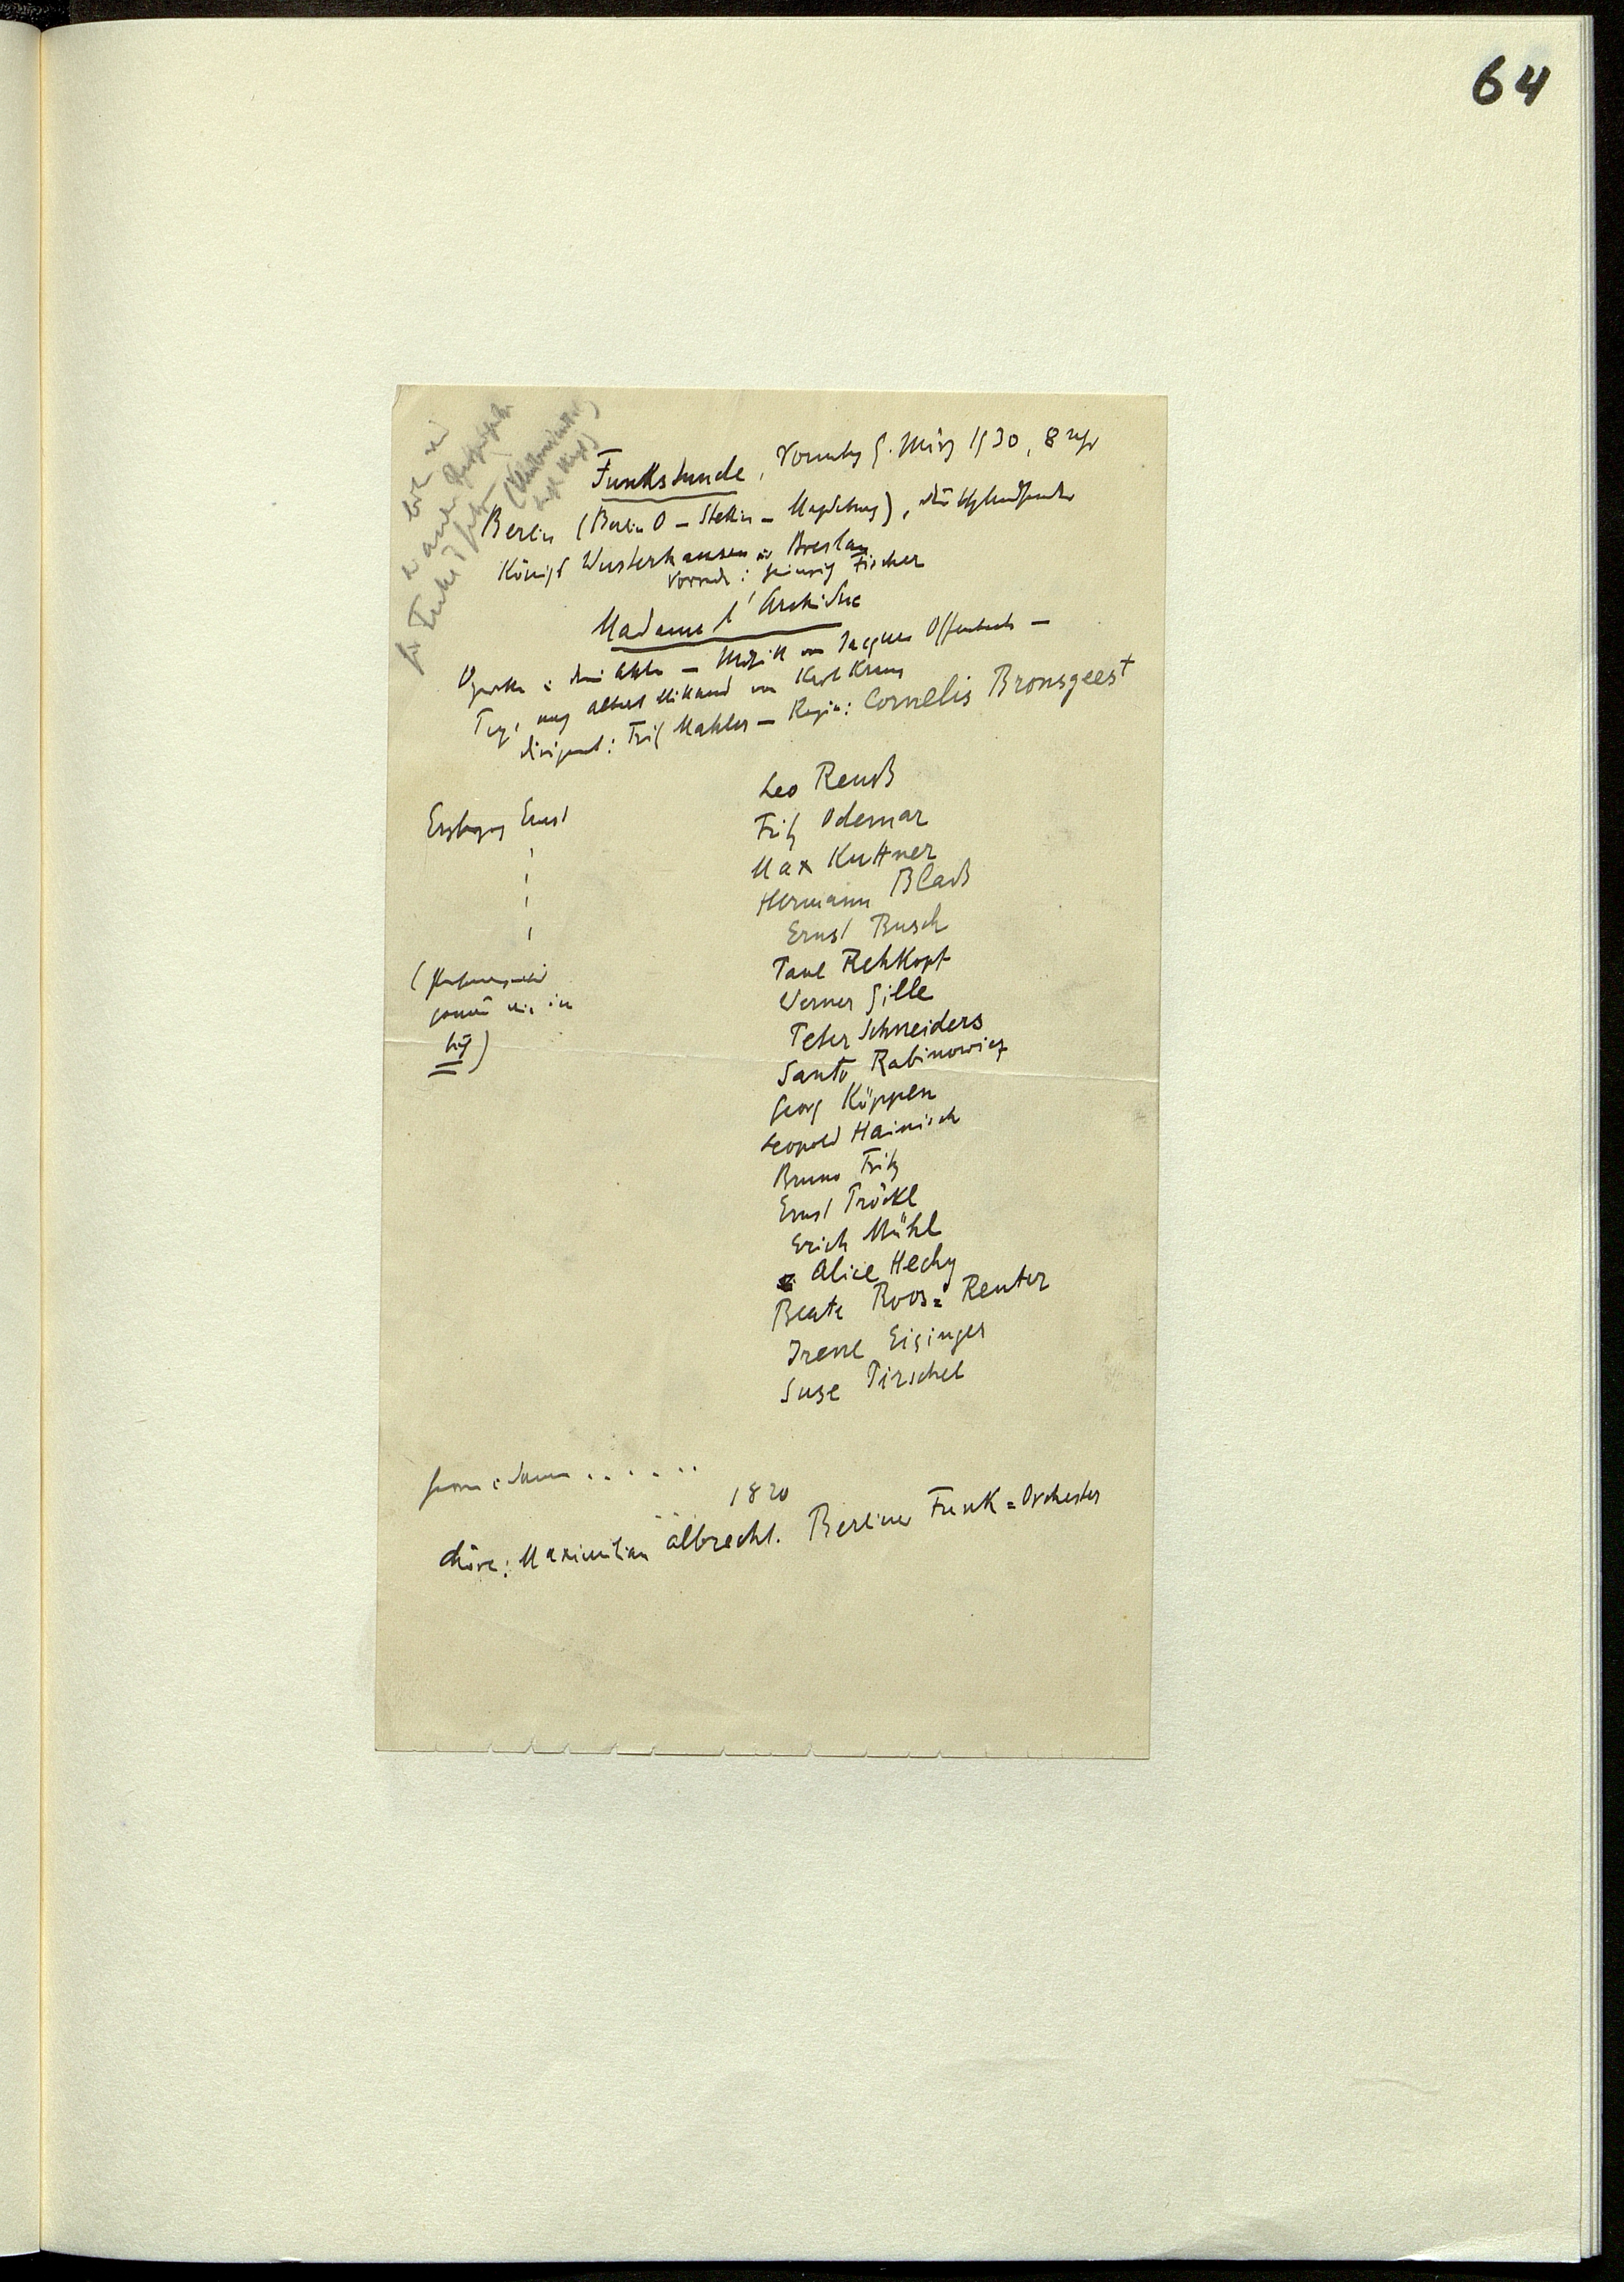 64
Funkstunde, Sonntag 9. März 1930, 8 Uhr
Berlin (Berlin O – Stettin – Magdeburg), Deutschlandsender
Königs Wusterhausen und Breslau
Vorrede: Heinrich Fischer
Madame l'Archiduc
Operette in drei Akten – Musik von Jacques Offenbach –
Text nach Albert Millaud von Karl Kraus
Dirigent: Fritz Mahler – Regie: Cornelis Bronsgeest
Leo Reuß
Erzherzog Ernst
Fritz Odemar
Max Kuttner
Hermann Blaß
Ernst Busch
Paul Rehkopf
(
genau wie in
)
Werner Gille
Peter Schneiders
Santo Rabinowicz
Georg Köppen
Leopold Hainisch
Bruno Fritz
Ernst Pröckl
Erich Mühl
Alice Hechy
Beate Roos=Reuter
Irene Eisinger
Suse Pirschel
Herren u. Damen ......
1820
Chöre: Maximilian Albrecht. Berliner Funk=Orchester